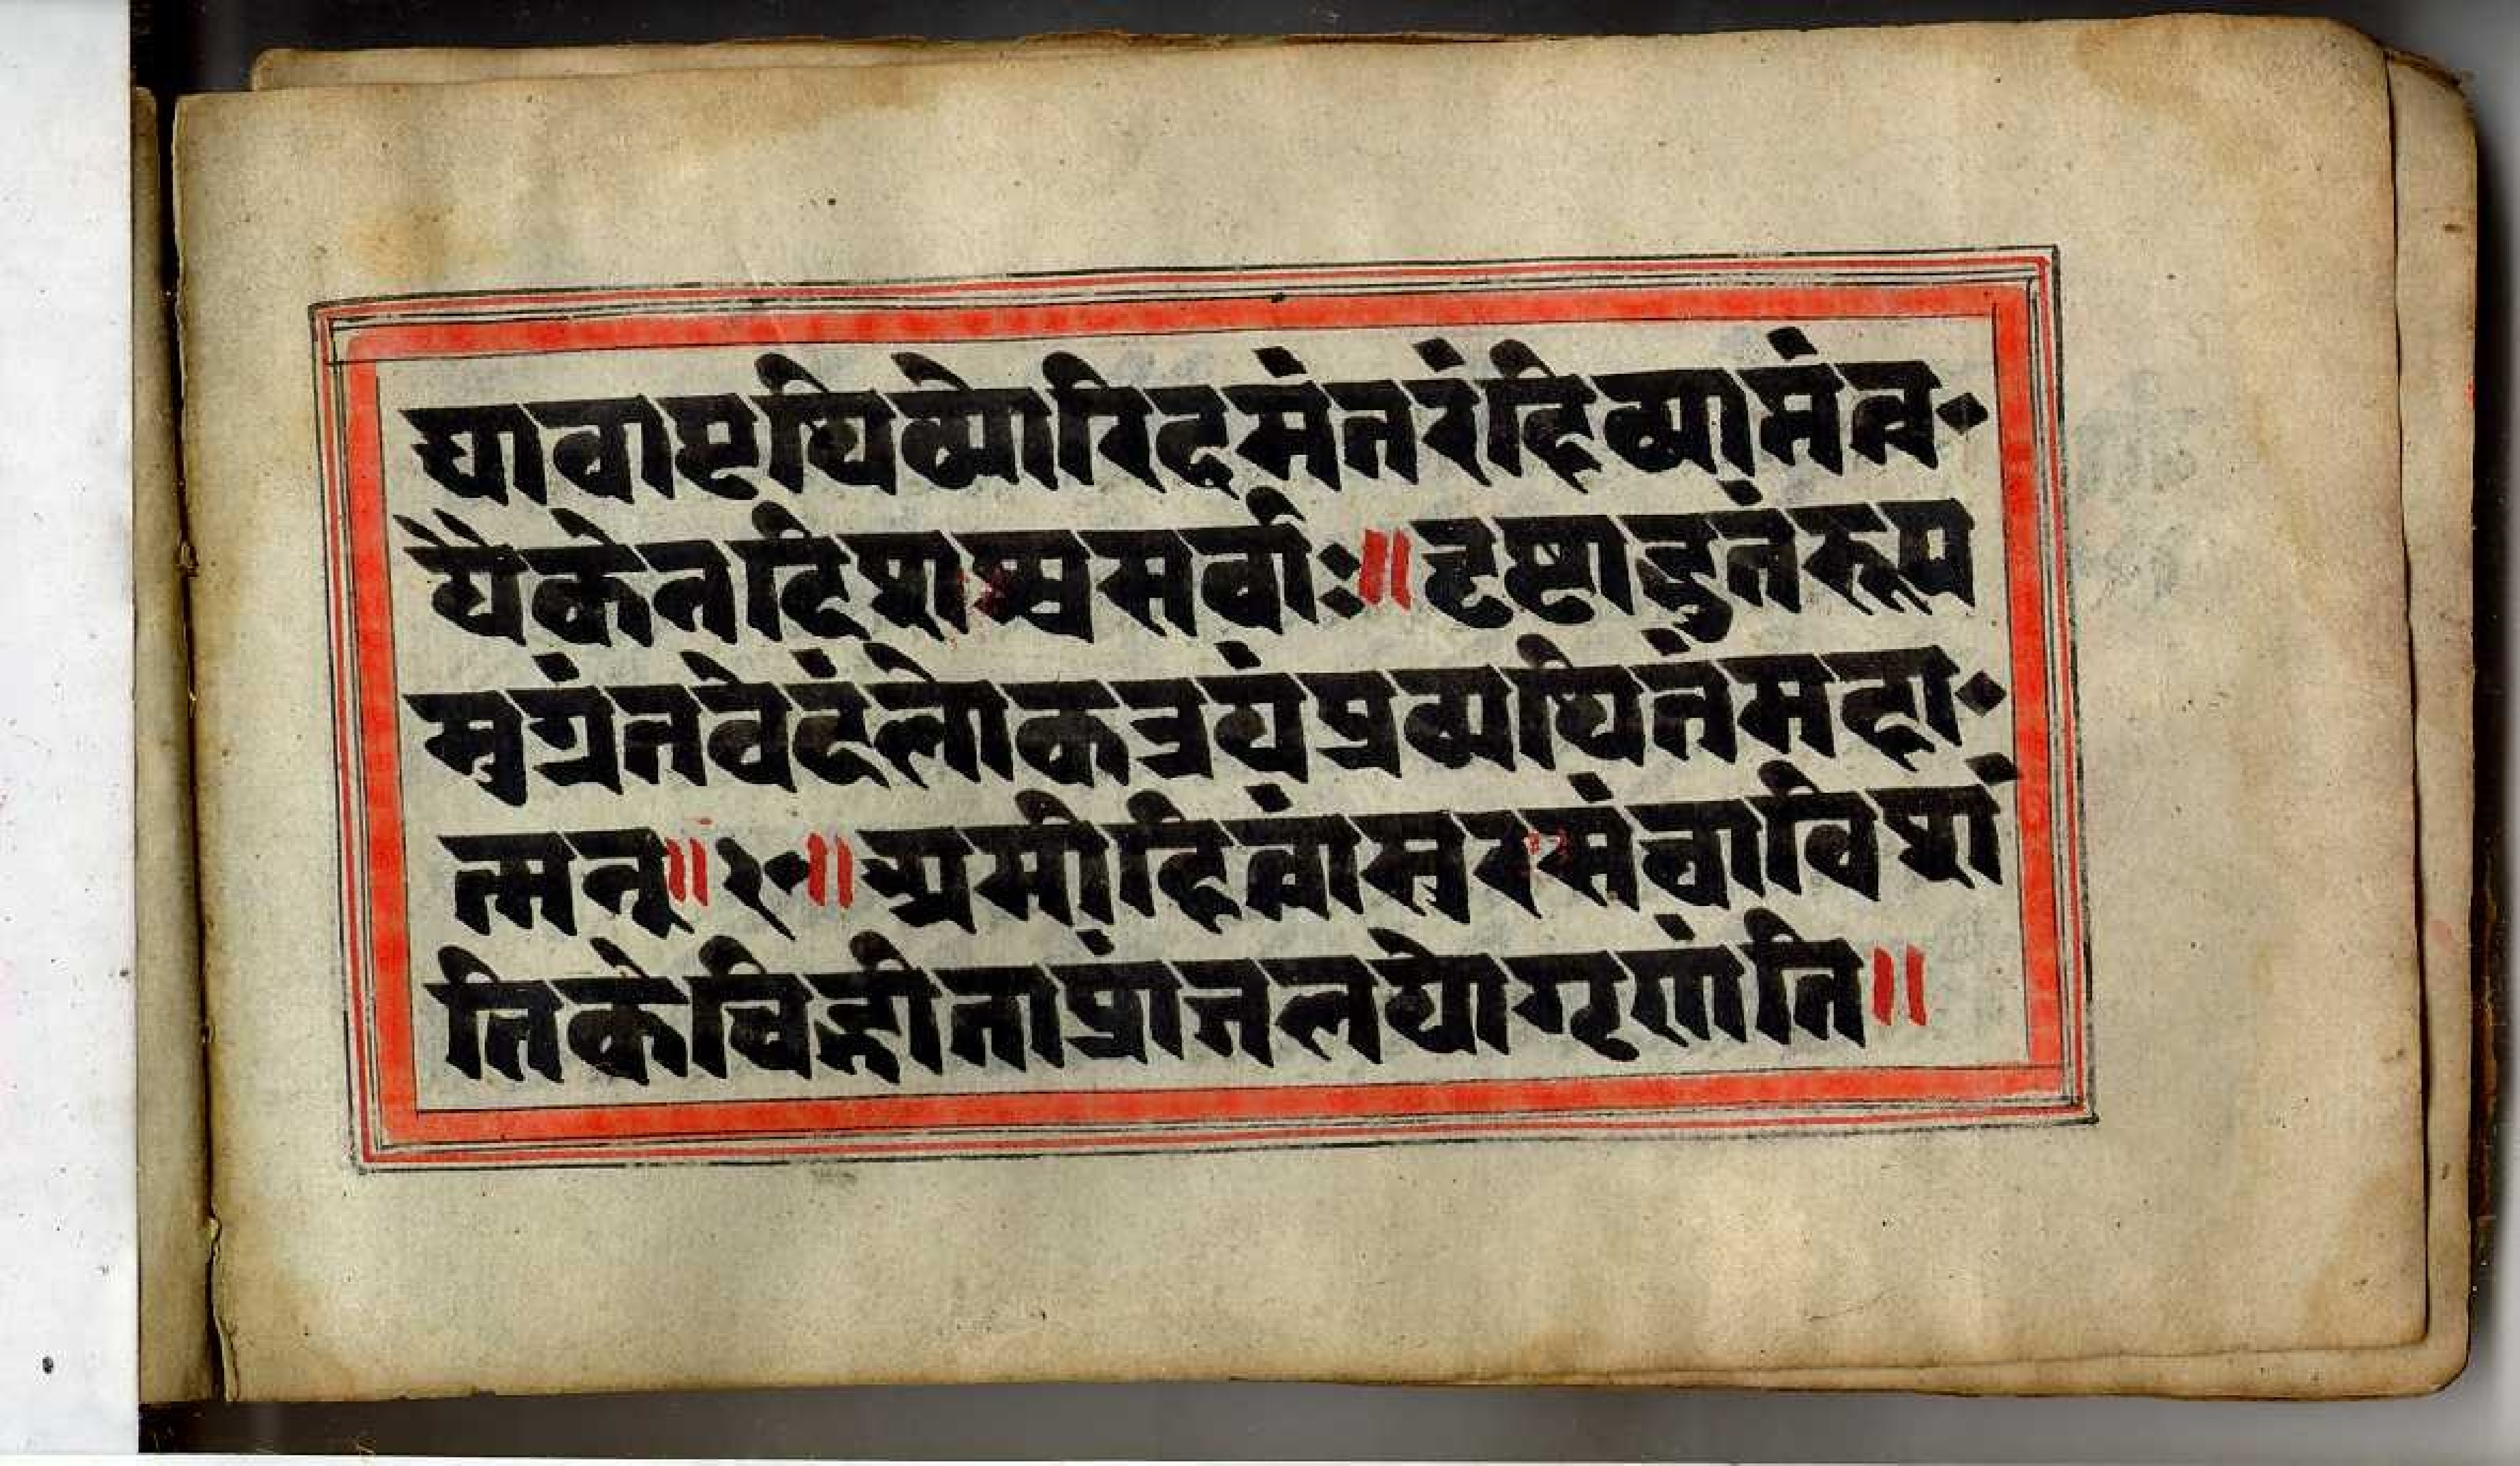 द्यावापृथिव्योरिदमंतरंहिव्याप्तंत्व
यैकेनदिशश्चसर्वाः॥दृष्टाद्भुतंरूपम
मुग्रंतवेदंलोकत्रयंप्रव्यथितंमहा
त्मन्॥२०॥अमीहित्वांसुरसंघाविशं
तिकेचिद्भीताप्रांजलयोगृणंति॥